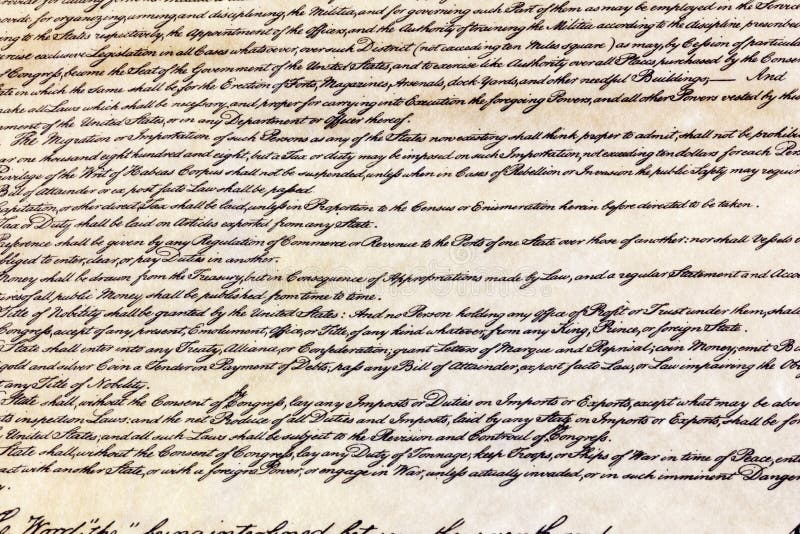 rovide for calling
for organizing, arming, and disciplining, the Militia, and for governing such Part of them as may be employed in the Service
ing to the States respectively, the Appointment of the Officers, and the Authority of training the Militia according to the discipline prescribed
ercise exclusive Legislation in all Cases whatsoever, over such District (not exceeding ten Miles square) as may, by Cession of particular
f Congress, become the Seat of the Government of the United States, and to exercise like Authority over all Places purchased by the Cons
ate in which the Same shall be, for the Erection of Forts, Magazines, Arsenals, dock-Yards, and other needful Buildings;— And
make all Laws which shall be necessary and proper for carrying into Execution the foregoing Powers, and all other Powers vested by this
rnment of the United States, or in any Department or Officer thereof.
The Migration or Importation of such Persons as any of the States now existing shall think proper to admit, shall not be prohibi
ar one thousand eight hundred and eight, but a Tax or duty may be imposed on such Importation, not exceeding ten dollars for each Per
Privilege of the Writ of Habeas Corpus shall not be suspended, unless when in Cases of Rebellion or Invasion the public Safety may requir
Bill of Attainder or ex post facto Law shall be passed.
Capitation, or other direct, Tax shall be laid, unless in Proportion to the Census or Enumeration herein before directed to be taken.
Tax or Duty shall be laid on Articles exported from any State.
Preference shall be given by any Regulation of Commerce or Revenue to the Ports of one State over those of another: nor shall Vessels b
bliged to enter, clear, or pay Duties in another.
Money shall be drawn from the Treasury, but in Consequence of Appropriations made by Law, and a regular Statement and Acco
tures of all public Money shall be published from time to time.
Title of Nobility shall be granted by the United States: And no Person holding any Office of Profit or Trust under them, shall
Congress, accept of any present, Emolument, Office, or Title, of any kind whatever, from any King, Prince, or foreign State.
State shall enter into any Treaty, Alliance, or Confederation; grant Letters of Marque and Reprisal; coin Money; emit B
gold and silver Coin a Tender in Payment of Debts; pass any Bill of Attainder, ex post facto Law, or Law impairing the Ob
t any Title of Nobility.
State shall, without the Consent of the Congress, lay any Imposts or Duties on Imports or Exports, except what may be abso
its inspection Laws: and the net Produce of all Duties and Imposts, laid by any State on Imports or Exports, shall be for
United States; and all such Laws shall be subject to the Revision and Controul of the Congress.
State shall, without the Consent of Congress, lay any Duty of Tonnage, keep Troops, or Ships of War in time of Peace, ente
act with another State, or with a foreign Power, or engage in War, unless actually invaded, or in such imminent Danger
y.
Word "the," being interlined between the